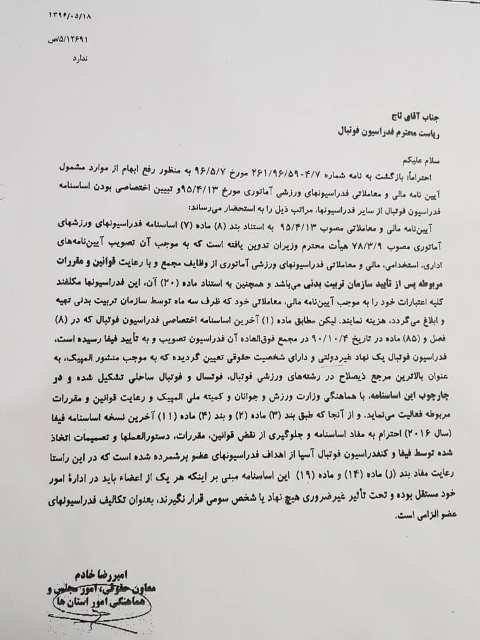 ۱۳۹۶/۰۵/۱۸
۵/۱۲۶۹۱/ص
ندارد
جناب آقای تاج
ریاست محترم فدراسیون فوتبال
سلام علیکم
احتراماً؛ بازگشت به نامه شماره ۲۶۱/۹۶/۵۹۰۴/۷ مورخ ۹۶/۵/۷ به منظور رفع ابهام از موارد مشمول
آیین نامه مالی و معاملاتی فدراسیونهای ورزشی آماتوری مورخ ۹۵/۴/۱۳ و تبیین اختصاصی بودن اساسنامه
فدراسیون فوتبال از سایر فدراسیونها، مراتب ذیل را به استحضار می‌رساند:
آیین‌نامه مالی و معاملاتی مصوب ۹۵/۴/۱۳ به استناد بند (۸) ماده (۷) اساسنامه فدراسیونهای ورزشهای
آماتوری مصوب ۷۸/۳/۹ هیأت محترم وزیران تدوین یافته است که به موجب آن تصویب آیین‌نامه‌های
اداری، استخدامی، مالی و معاملاتی فدراسیونهای ورزشی آماتوری از وظایف مجمع و با رعایت قوانین و مقررات
مربوطه پس از تأیید سازمان تربیت بدنی می‌باشد و همچنین به استناد ماده (۲۰) آن، این فدراسیونها مکلفند
کلیه اعتبارات خود را به موجب آیین‌نامه مالی، معاملاتی خود که ظرف سه ماه توسط سازمان تربیت بدنی تهیه
و ابلاغ می‌گردد، هزینه نمایند. لیکن مطابق ماده (۱) آخرین اساسنامه اختصاصی فدراسیون فوتبال که در (۸)
فصل و (۸۵) ماده در تاریخ ۹۰/۱۰/۴ در مجمع فوق‌العاده آن فدراسیون تصویب و به تأیید فیفا رسیده است،
فدراسیون فوتبال یک نهاد غیردولتی و دارای شخصیت حقوقی تعیین گردیده که به موجب منشور المپیک، به
عنوان بالاترین مرجع ذیصلاح در رشته‌های ورزشی فوتبال، فوتسال و فوتبال ساحلی تشکیل شده و در
چارچوب این اساسنامه، با هماهنگی وزارت ورزش و جوانان و کمیته ملی المپیک و رعایت قوانین و مقررات
مربوطه فعالیت می‌نماید. و از آنجا که طبق بند (۳) ماده (۲) و بند (۴) ماده (۱۱) آخرین نسخه اساسنامه فیفا
(سال ۲۰۱۶) احترام به مفاد اساسنامه و جلوگیری از نقض قوانین، مقررات، دستورالعملها و تصمیمات اتخاذ
شده توسط فیفا و کنفدراسیون فوتبال آسیا از اهداف فدراسیونهای عضو برشمرده شده است که در این راستا
رعایت مفاد بند (ز) ماده (۱۴) و ماده (۱۹) این اساسنامه مبنی بر اینکه هر یک از اعضاء باید در ادارهٔ امور
خود مستقل بوده و تحت تأثیر غیرضروری هیچ نهاد یا شخص سومی قرار نگیرند، بعنوان تکالیف فدراسیونهای
عضو الزامی است.
امیررضا خادم
معاون حقوقی، امور مجلس و
هماهنگی امور استان ها